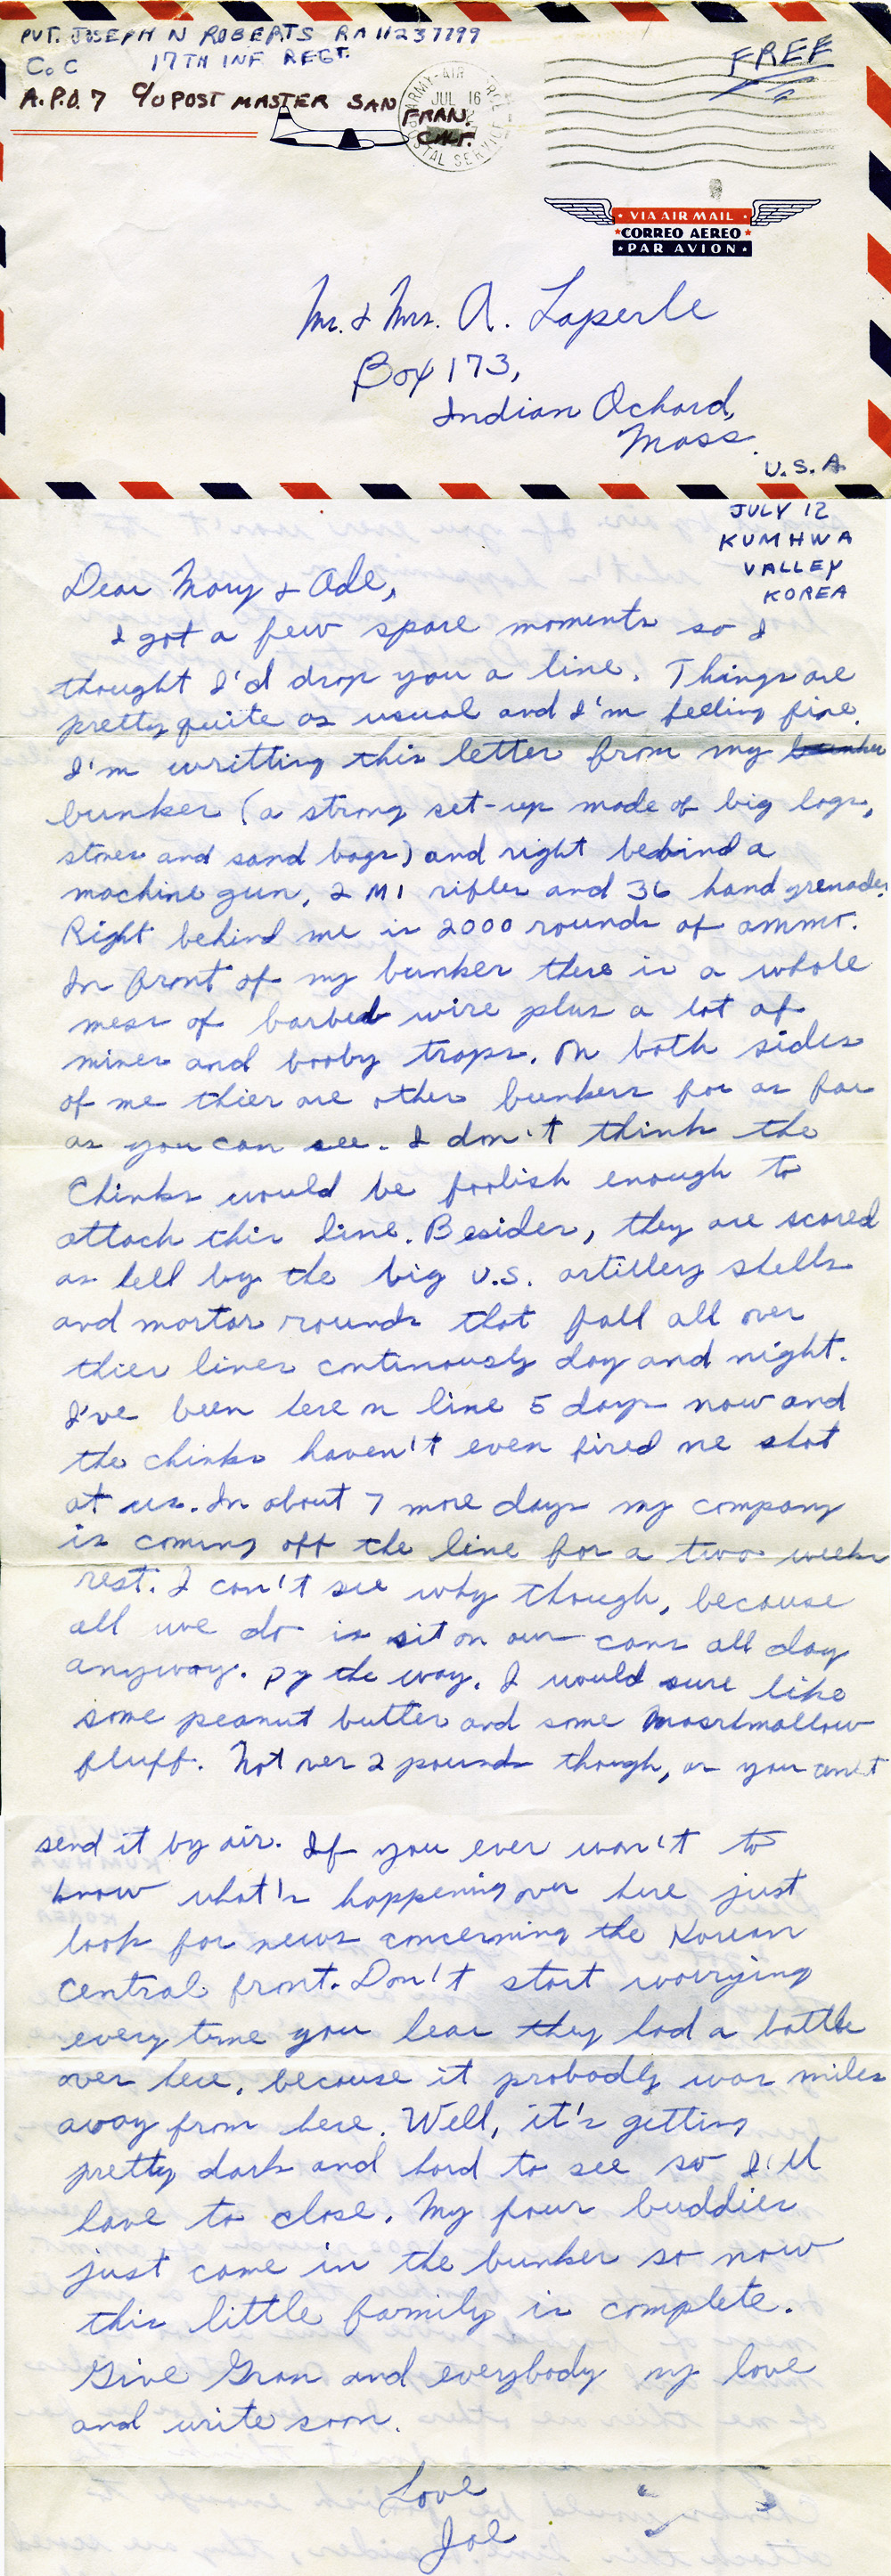 PVT. JOSEPH N ROBERTS RA 11237799
Co C 17TH INF REGT.
A.P.O. 7 C/O POST MASTER SAN
FRAN.
CAL.
FREE
ARMY-AIR
JUL 16
POSTAL SERVICE
VIA AIR MAIL
CORREO AEREO
PAR AVION
Mr. & Mrs. A. Laperle
Box 173,
Indian Ochard,
Mass.
U.S.A
JULY 12
KUMHWA
VALLEY
KOREA
Dear Mary & Ade,
I got a few spare moments so I
thought I'd drop you a line. Things are
pretty quite as usual and I'm feeling fine.
I'm writting this letter from my bunker
bunker (a strong set-up made of big logs,
stones and sand bags) and right behind a
machine gun, 2 M1 rifles and 36 hand grenades.
Right behind me is 2000 rounds of ammo.
In front of my bunker there is a whole
mess of barbed wire plus a lot of
mines and booby traps. On both sides
of me thier are other bunkers for as far
as you can see. I don't think the
Chinks would be foolish enough to
attack this line. Besides, they are scared
as hell by the big U.S. artillery shells
and mortar rounds that fall all over
thier lines continously day and night.
I've been here on line 5 days now and
the chinks haven't even fired one shot
at us. In about 7 more days my company
is coming off the line for a two weeks
rest. I can't see why though, because
all we do is sit on our cans all day
anyway. By the way, I would sure like
some peanut butter and some Marshmallow
fluff. Not over 2 pounds though, or you can't
send it by air. If you ever won't to
know what's happening over here just
look for news concerning the Korean
Central front. Don't start worrying
every time you hear they had a battle
over here, because it probably was miles
away from here. Well, it's getting
pretty dark and hard to see so I'll
have to close. My four buddies
just came in the bunker so now
this little family is complete.
Give Gran and everybody my love
and write soon.
Love
Joe